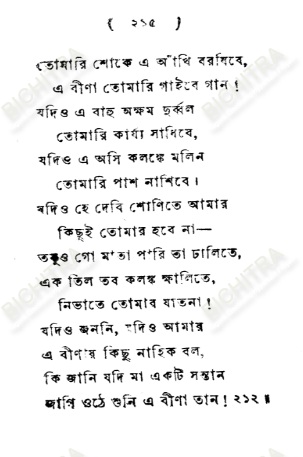 ( ২১৫ )
তোমারি শোকে এ আঁখি বরষিবে,
এ বীণা তোমারি গাইবে গান !
যদিও এ বাহু অক্ষম দুর্ব্বল
তোমারি কার্য্য সাধিবে,
যদিও এ অসি কলঙ্কে মলিন
তোমারি পাশ নাশিবে ।
যদিও হে দেবি শোণিতে আমার
কিছুই তোমার হবে না—
তবুও গো মাতা পারি তা ঢালিতে,
এক তিল তব কলঙ্ক ক্ষালিতে,
নিভাতে তোমার যাতনা !
যদিও জননি, যদিও আমার
এ বীণায় কিছু নাহিক বল,
কি জানি যদি মা একটি সন্তান
জাগি ওঠে শুনি এ বীণা তান ! ২১২ ॥
BICHITRA